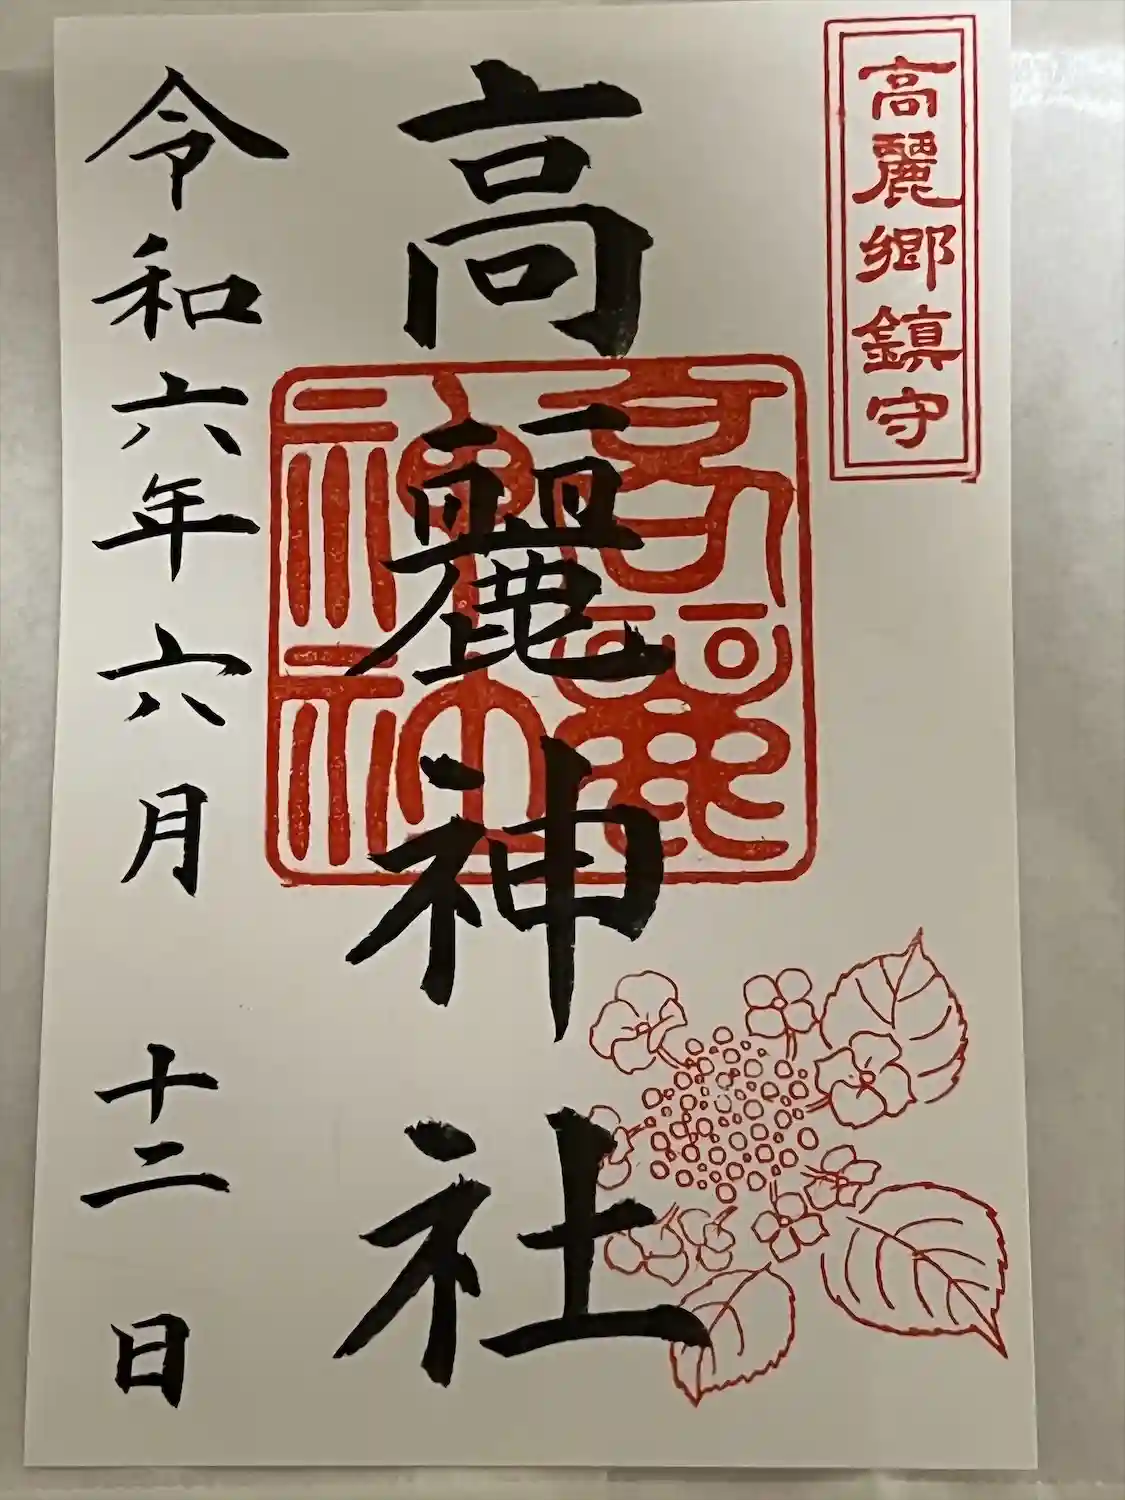 高麗郷鎮守
高麗神社
高麗
神社
令和六年六月十二日